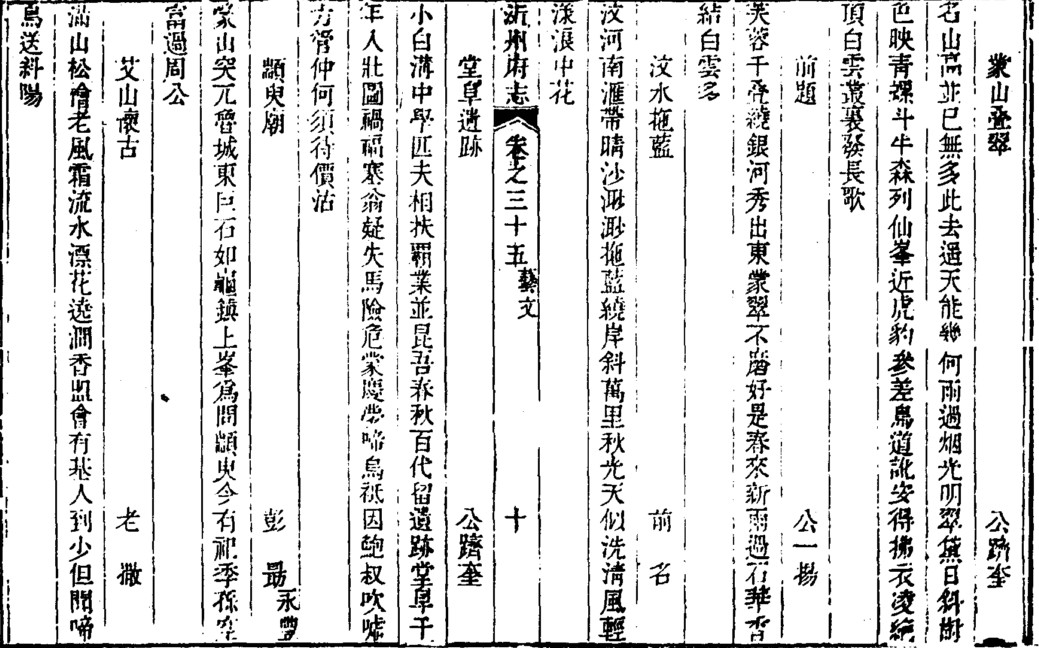 蒙山叠翠 公躋奎
名山高並已無多此去過天能幾何雨過烟光明翠黛日斜樹
色映青螺斗牛森列仙峯近虎豹參差鳥道訛安得拂衣凌絶
頂白雲叢裏發長歌
前題 公一揚
芙蓉千叠繞銀河秀出東蒙翠不磨好是春來新雨過石華香
結白雲多
汶水拖藍 前名
汶河南滙帶晴沙渺渺拖藍繞岸斜萬里秋光天似洗清風輕
漾浪中花
沂州府志 卷之三十五 藝文 十
堂阜遺跡 公躋奎
小白溝中學匹夫相扶霸業並昆吾春秋百代留遺跡堂阜千
年入壯圖禍福塞翁疑失馬險危蒙慶夢啼烏祇因鮑叔吹噓
力管仲何須待價沽
顓臾廟 彭勗永豐
蒙山突兀魯城東巨石如龜鎮上峯爲問顓臾今有祀季孫空
富過周公
艾山懷古 老撒
滿山松檜老風霜流水漂花遶澗香盟會有基人到少但聞啼
鳥送斜陽